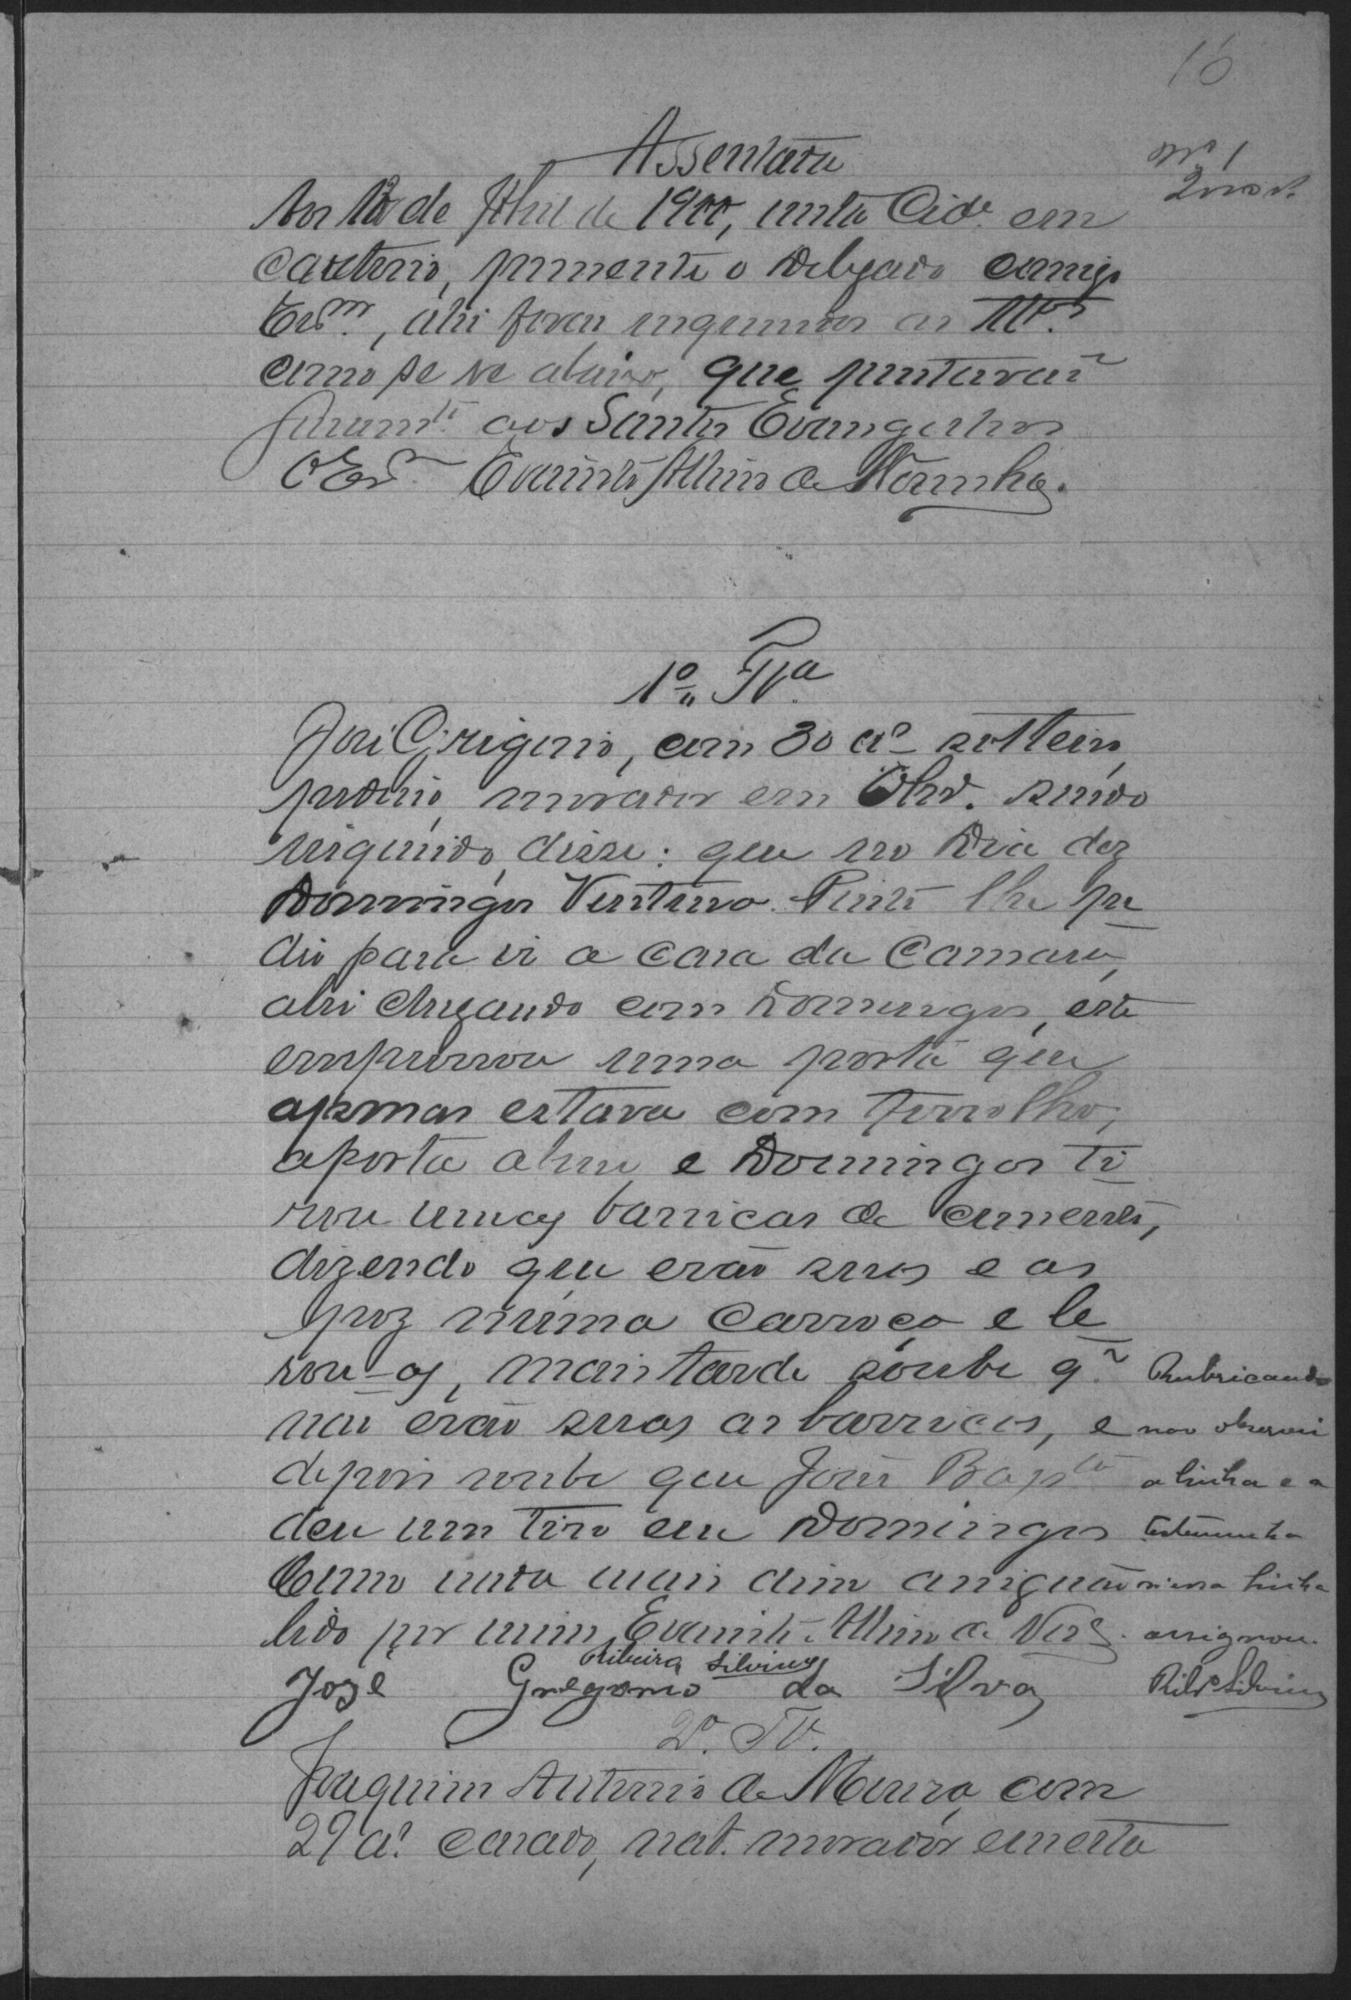 16
Assentada
Nº 1
Aos 12 de Abril de 1900, nesta Cidᵉ em
Cartorio, presente o Delegado comigo
Escᵐ, ahi foram inqueridas as
como se ve abaixo, que prestarão
juramᵗᵒ aos Santos Evangelhos
O Escᵐ Evaristo Albino de Noronha.
1ª Tª
José Grigorio, com 30 aˢ solteiro,
pedreiro, morador em Olivª. sendo
inquirido, disse: que no dia dez
Domingos Venturo Pinto lhe pe
dio para ir a casa da Camara,
ahi chegando com Domingos, este
empurrou uma porta que
apenas estava com ferrolho,
a porta abriu e Domingos ti
rou umas barricas de cimento,
dizendo que erão suas e as
poz n'uma carroça e le
vou-as, mais tarde soube q.
não erão suas as barricas, e
depois soube que João Bapᵗᵃ
deu um tiro em Domingos
Como nada mais disse assignão
lido por mim, Evaristo Albino de Norª.
Ribeiro Silviny
José Gregorio da Silva
Rubricando
não observei
a linha e a
testemunha
n'essa linha
assignou.
Ribº Silviny
2ª Tª.
Joaquim Antonio de Moura, com
29 aˢ. casado, nat. morador em esta